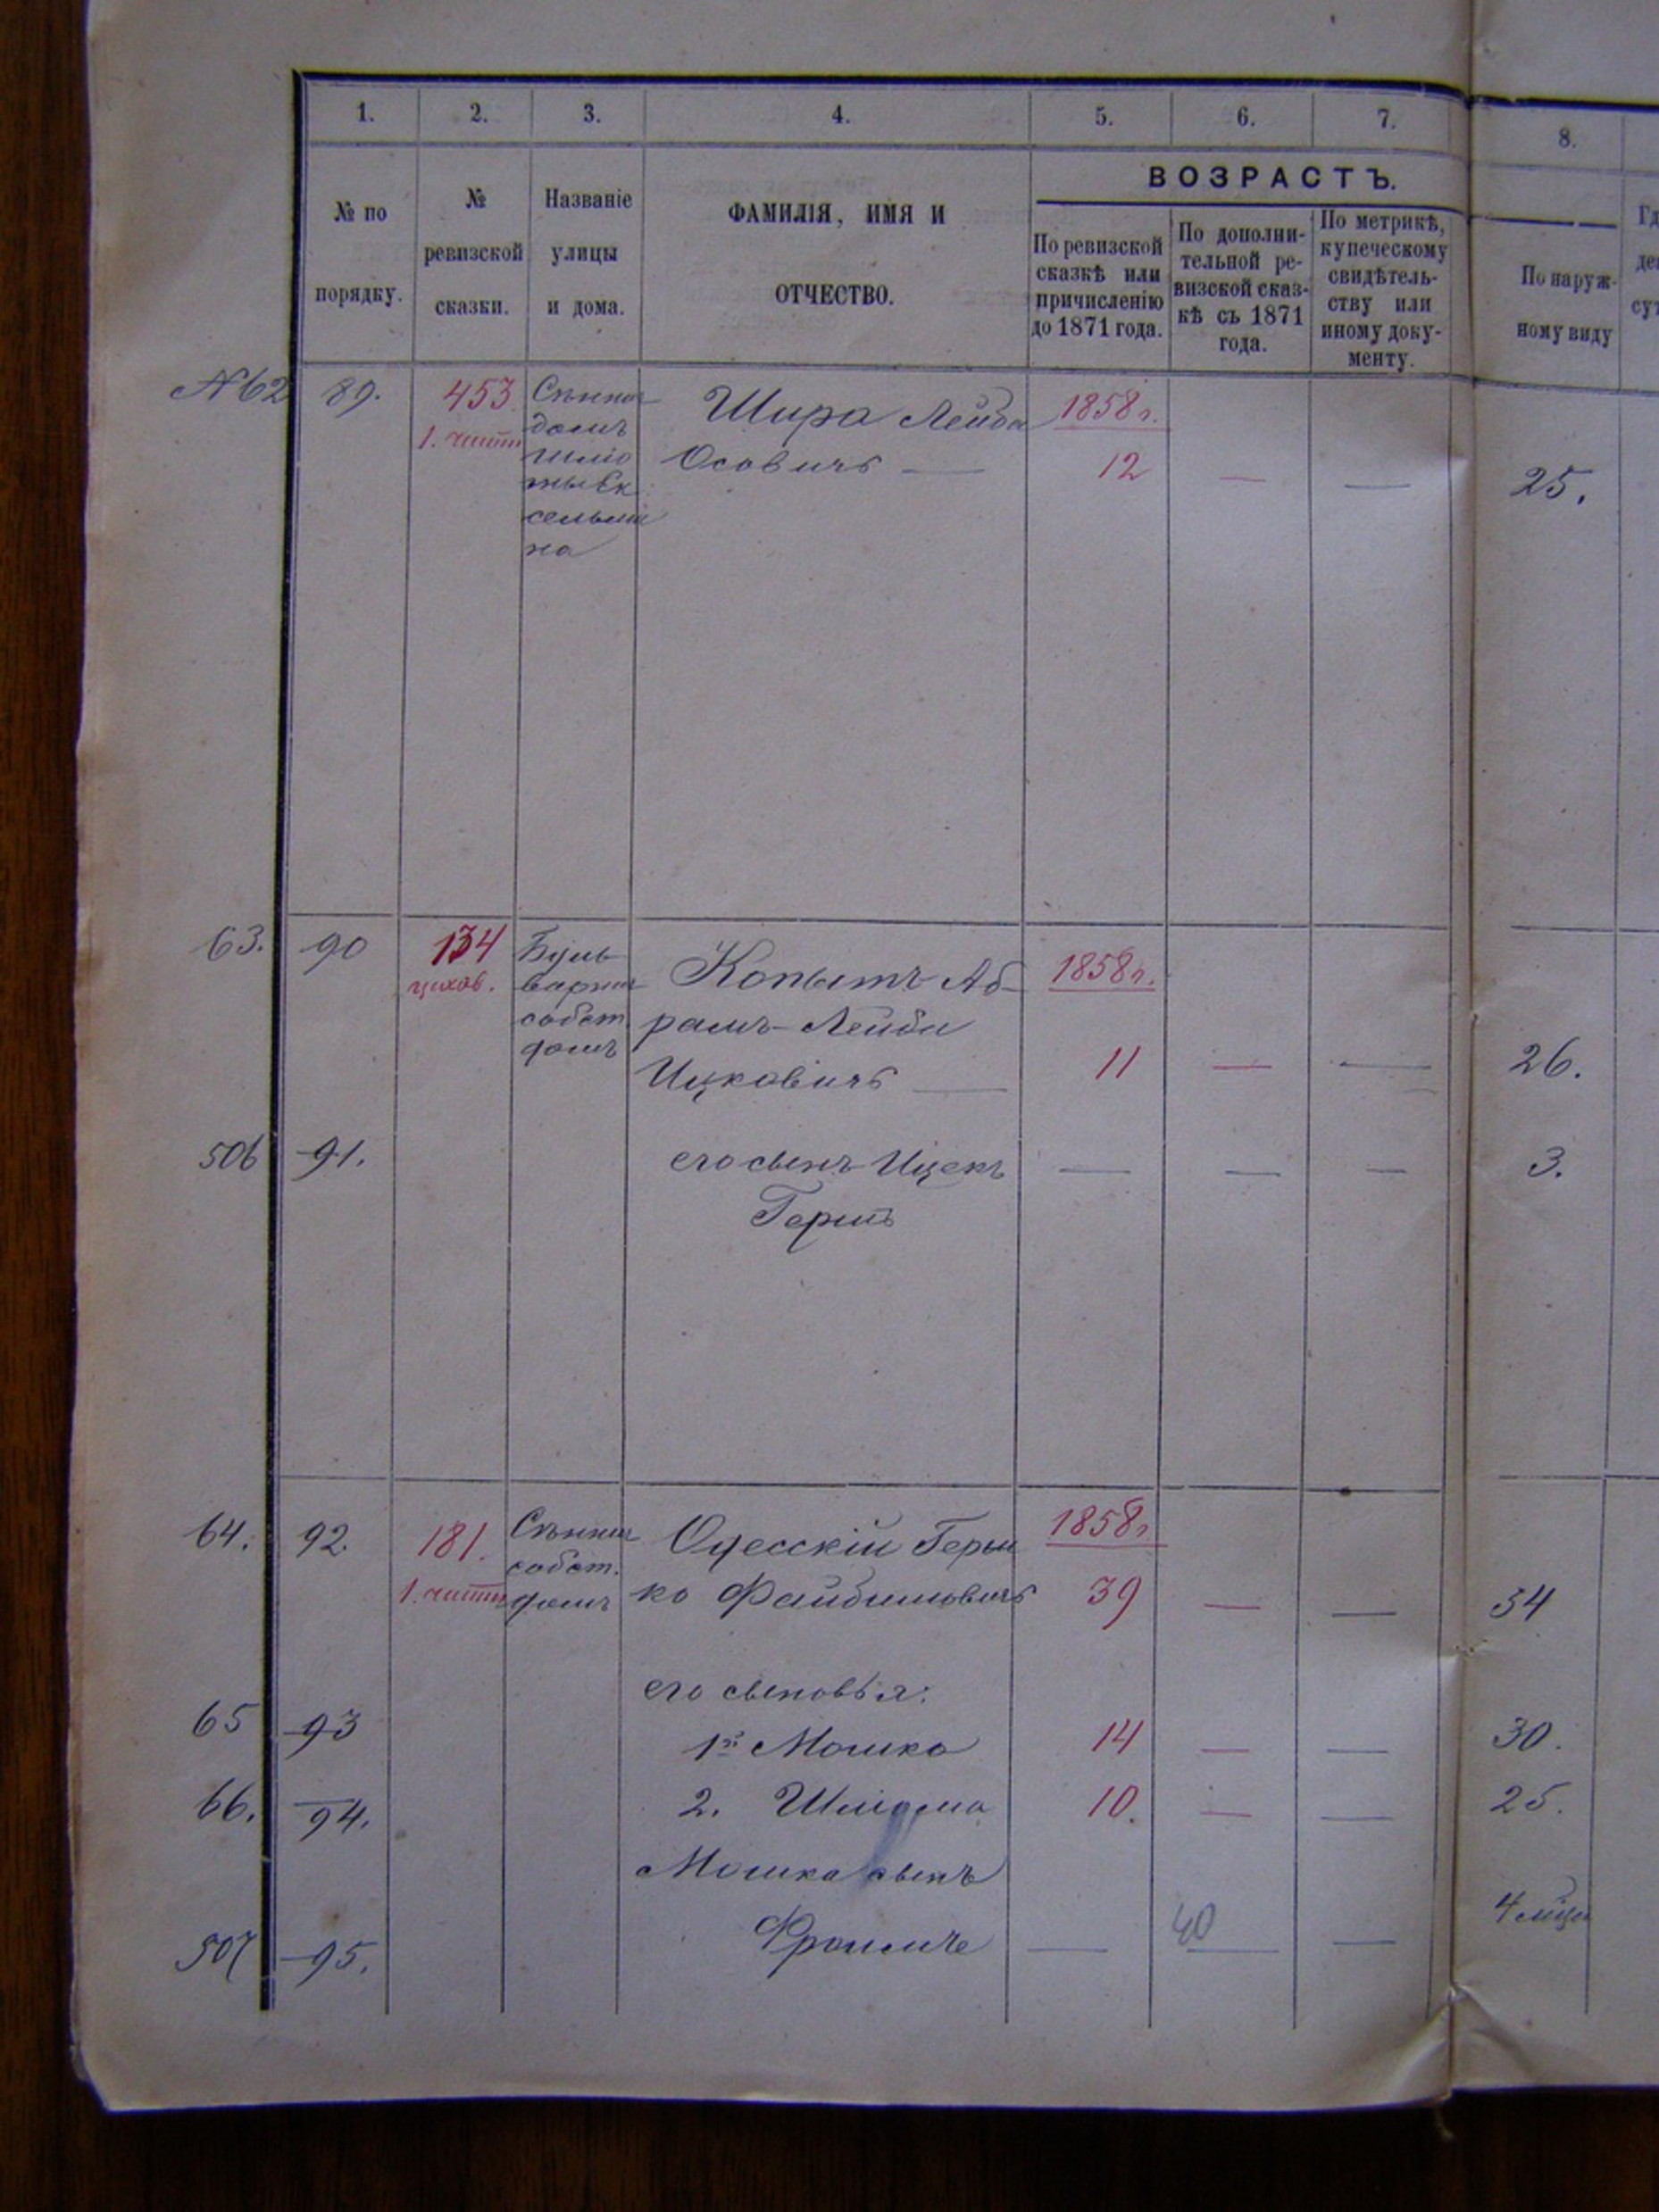 1. 2. 3. 4. 5. 6. 7. 8.
№ по порядку.
№ ревизской сказки.
Названіе улицы и дома.
ФАМИЛІЯ, ИМЯ И ОТЧЕСТВО.
ВОЗРАСТЪ.
По ревизской сказкѣ или причисленію до 1871 года.
По дополнительной ревизской сказкѣ съ 1871 года.
По метрикѣ, купеческому свидѣтельству или иному документу.
По наружному виду
№ 62 89. 453 Шира Лейба 1858 г.
домъ
Осовичъ — 12 — — 25.
63. 90 134 Буль
Копытъ Аб- 1858 г.
собст. рамъ-Лейба
домъ
Ицковичъ — 11 — — 26.
506 91. его сынъ Ицекъ — — — 3.
Гершъ
64. 92. 181. Одесскій Герш 1858 г
собст.
домъ ко Файбишовичъ 39 — — 54
его сыновья:
65 93 1й Мошко 14 — — 30.
66. 94. 2. Шліома 10. — — 25.
Мошка сынъ
507 95. Фроимъ — 40 — —